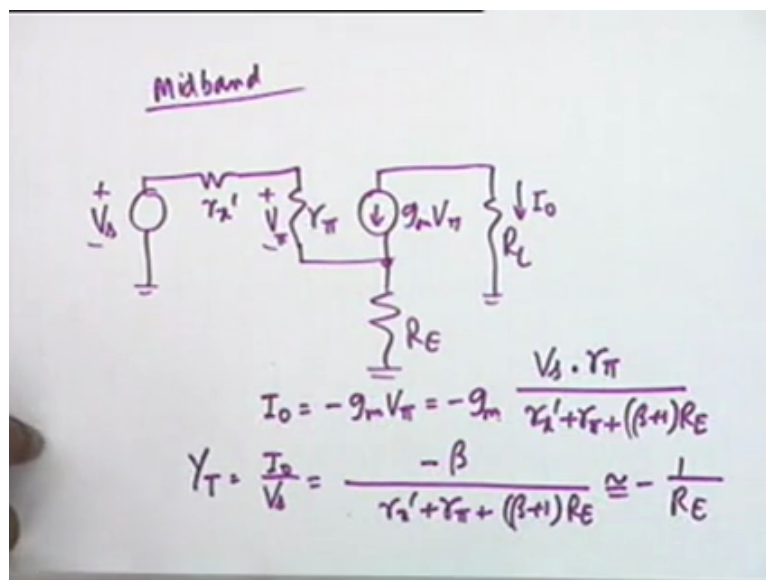 Midband
+ Vs - rx' + Vπ - rπ gmVπ ↓ I0 RL
RE
I0 = - gmVπ = - gm Vs . rπ / rx' + rπ + (β+1)RE
YT = I0 / Vs = - β / rx' + rπ + (β+1)RE ≅ - 1 / RE